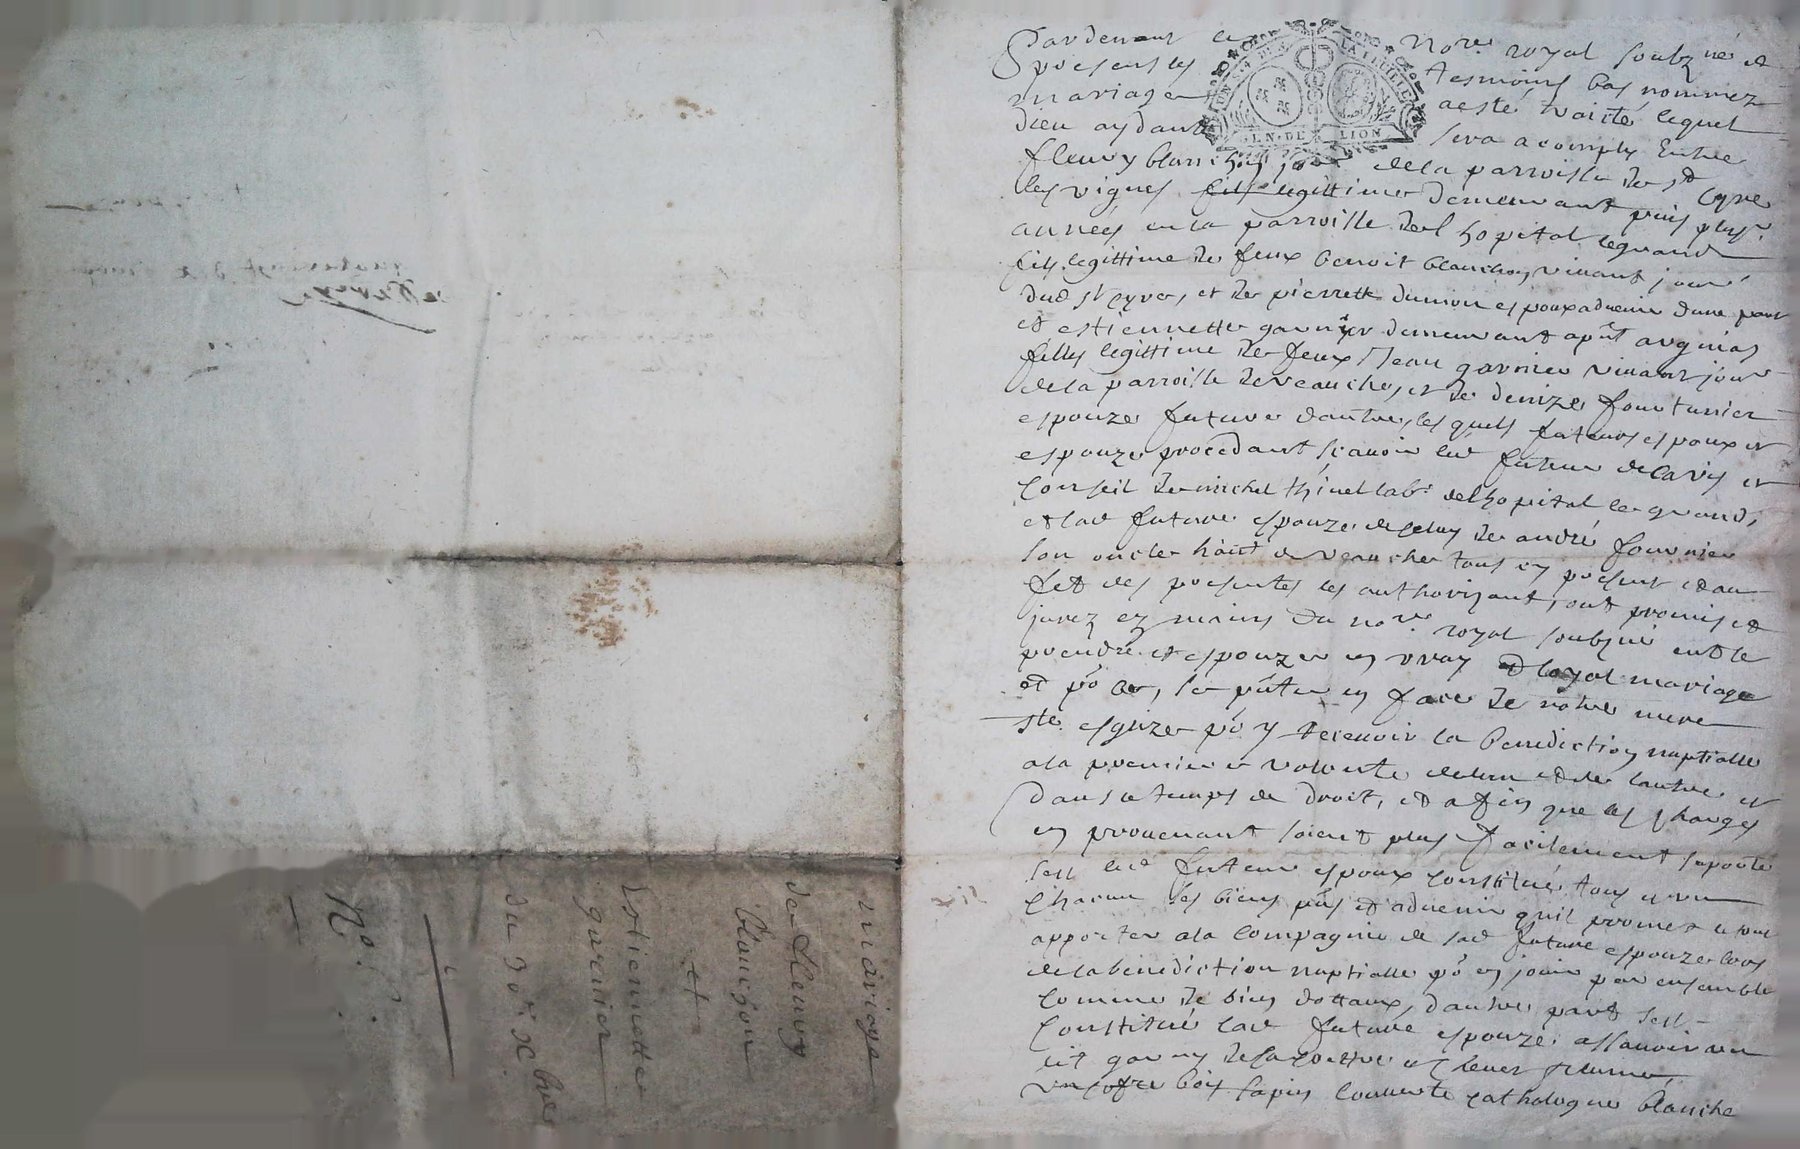 mariage
de fleury
blanchon
et
Estiennette
garnier
du 30e xbre
No.
Pardevant le Nore. royal soubzné et
presents les tesmoins bas nommez
mariage a esté traicté lequel
dieu aydant sera acomply Entre
fleury blanchon jour de la parroisse de st cyre
les vignes fils legittime demeurant puis plusr.
années en la parroisse de l'hopital legrand
fils legittime de feux benoit blanchon vivant jour
dud st cyre, et de pierrette dumon espoux advenir d'une part
et estiennette garnier demeurant apnt
fille legittime de feux Jean garnier vivant jour
de la parroisse de veauche, et de denize fournier
espouze future d'autre, lesquels futeurs espoux et
espouze procedant scavoir led futeur de l'avis et
conseil de michel thinet labr de l'hopital le grand,
et lad future espouze de celuy de andré fournier
son oncle hant de veauche tous cy present et au
fet des presentes les authorizant, ont promis et
jurez ez mains du nore. royal soubzné de se
prendre et espouzer en vray et loyal mariage
et po ce, se pnter en face de notre mere
ste. esglize po y recevoir la benediction nuptialle
a la premiere volonte de l'un et de l'autre et
dans le temps de droit, et afin que les charges
en provenant soient plus facilement suporté
sest led futeur espoux constitué tous et un
chacun ses biens pns et advenir qu'il promet
apporter a la compagnie de sad future espouze lors
de la benediction nuptialle po en jouir par ensemble
comme de bien dottaux, d'autre part sest
constitué lad future espouze assavoir un
lit garny de sa coettre et chevet plume,
un cofre bois sapin couverte cathalogne blanche